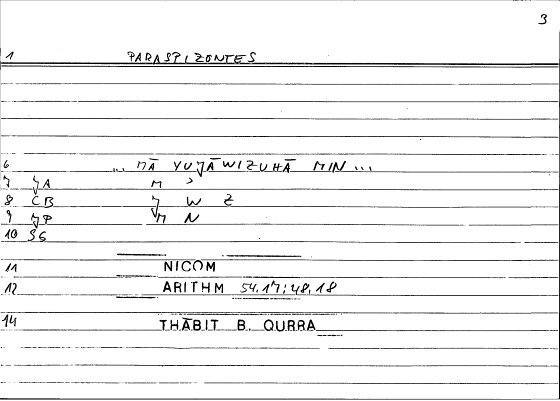 3
1 PARASPIZONTES
6 ... MĀ YUJĀWIZUHĀ MIN ...
7 JA M ʾ
8 CB J W Z
9 MP M N
10 SG
11 NICOM
12 ARITHM 54,17; 48,18
14 THĀBIT B. QURRA